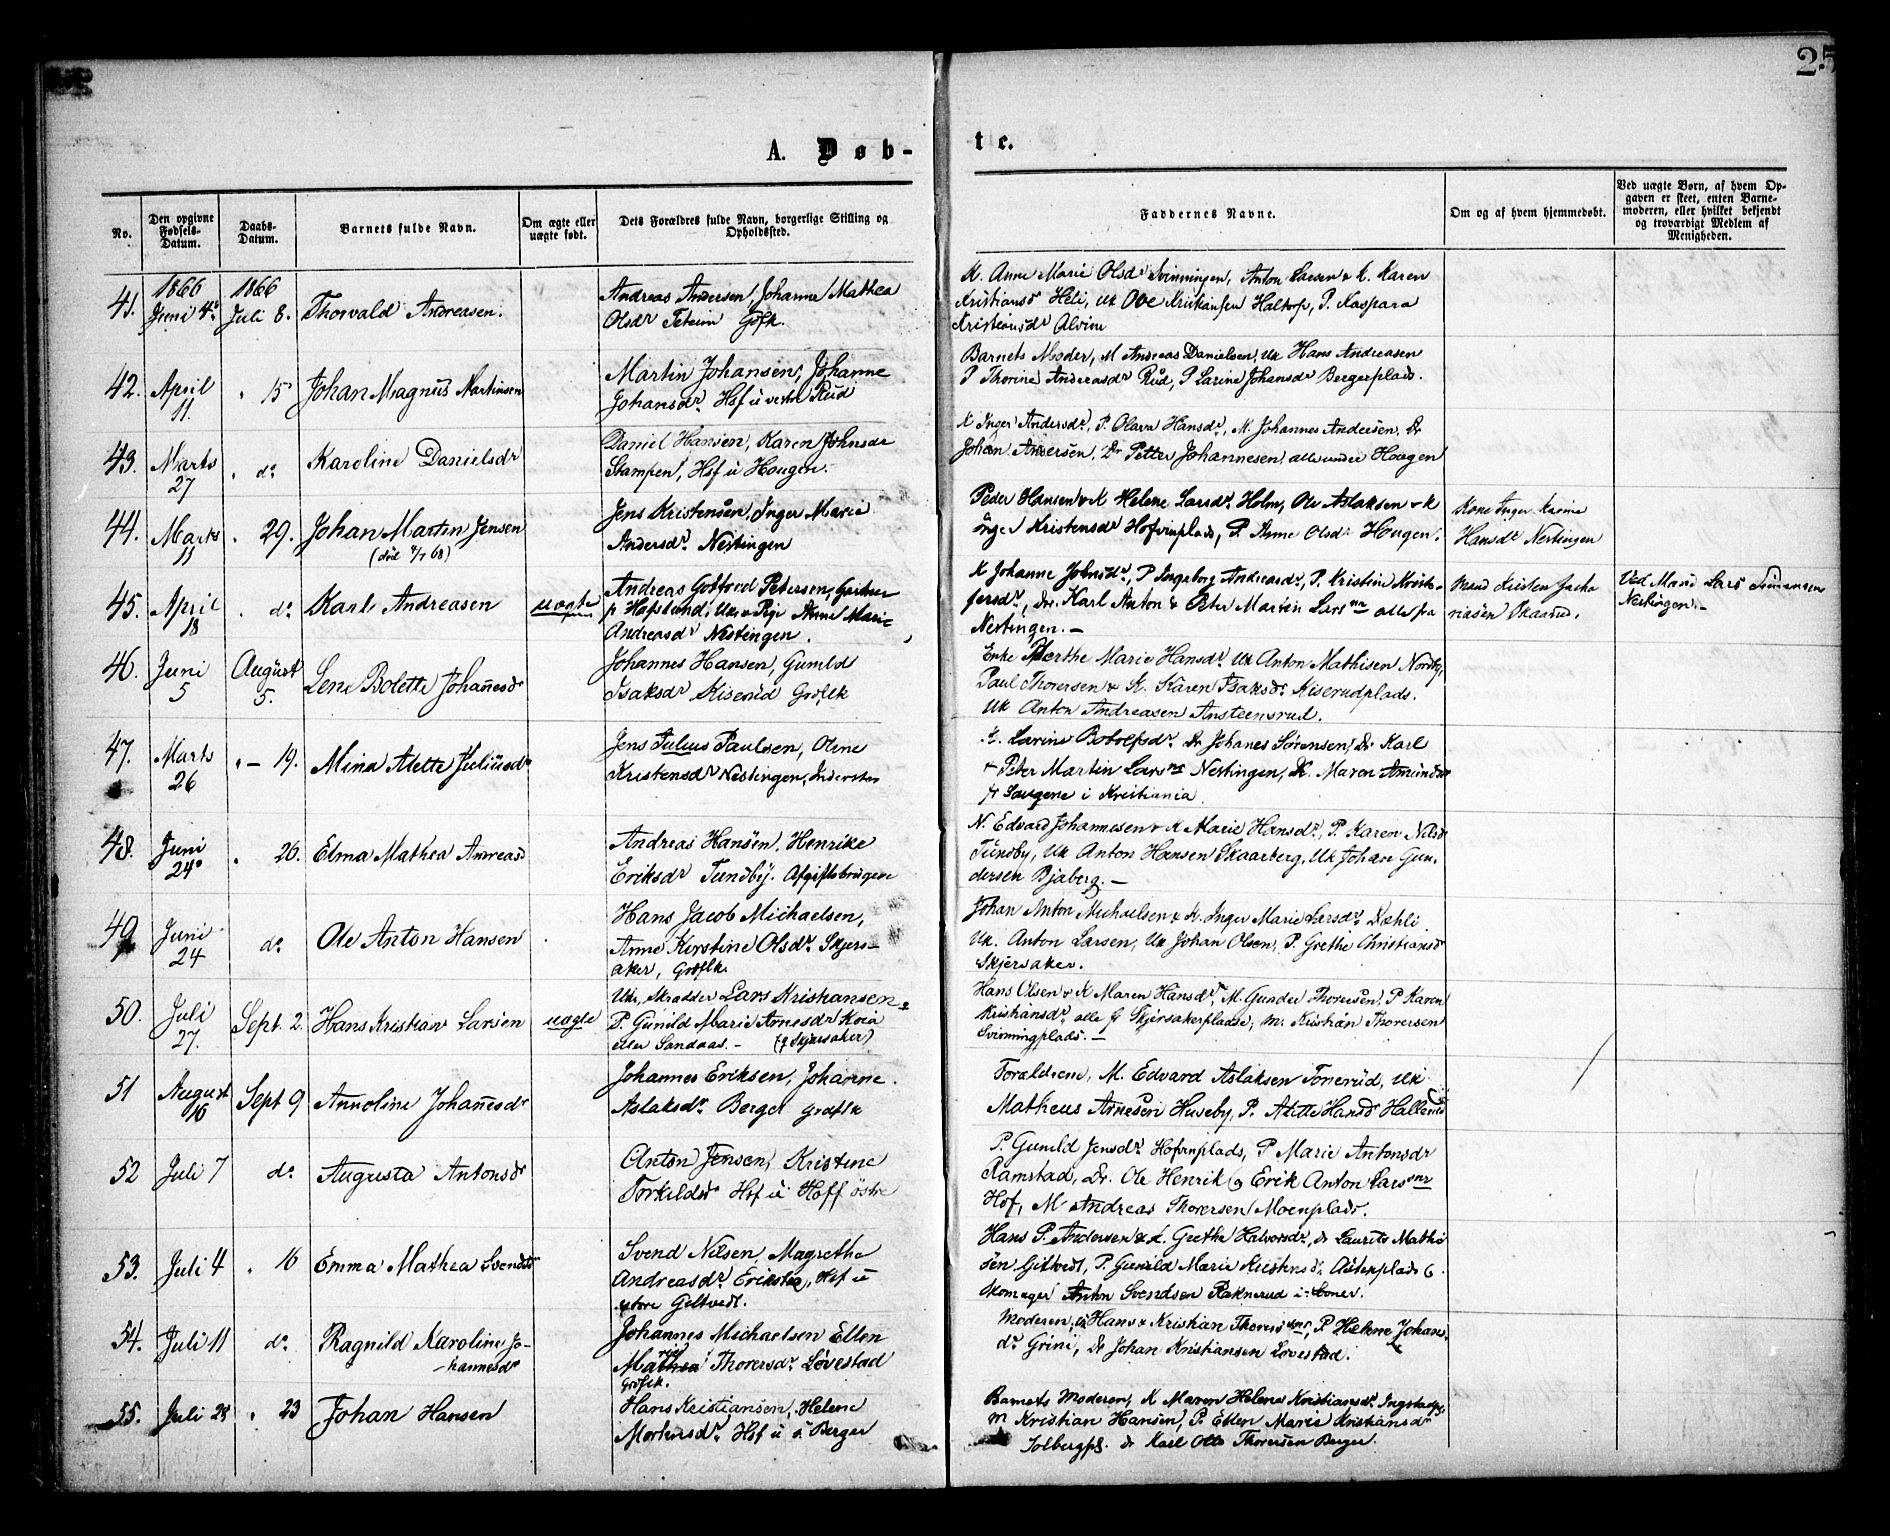 25
A. Døb-
te.
No.
Den opgivne Fødsels-Datum.
Daabs-Datum.
Barnets fulde Navn.
Om ægte eller uægte født.
Dets Forældres fulde Navn, borgerlige Stilling og Opholdssted.
Faddernes Navne.
Om og af hvem hjemmedøbt.
Ved uægte Børn, af hvem Opgaven er skeet, enten Barnemoderen, eller hvilket bekjendt og troværdigt Medlem af Menigheden.
41. 1866 Juni 1866 Juli 8. Thorvald Andreasen.
Andreas Andersen, Johanne Mathea
Olsdr Teteim Gdfk.
K. Anne Marie Olsdr Svinningen, Anton Larsen & K. Karen
Kristiansdr Heli, Uk Ove Kristiansen Haltorp, P. Kaspara
Kristiansdr Alvim
42. April 11. " 15 Johan Magnus Martinsen
Martin Johansen, Johanne
Johansdr. Hsf u vestre Rud
Barnets Moder, M Andreas Danielsen, Uk Hans Andreasen
P Thorine Andreasdr Rud, P Larine Johansdr Bergerplads.
43. Marts 27 " do. Karoline Danielsdr
Daniel Hansen, Karen Johnsdr
Stampen, Hsf u Hougen.
K Inger Andersdr, P. Olava Hansdr, M. Johannes Andersen, Dr
Johan Andersen, Dr Petter Johannesen alle under Hougen
44. Marts 11 " 29. Johan Martin Jensen
(død 4/7 68)
Jens Kristensen, Inger Marie
Andersdr. Nestingen
Peder Hansen & K Helene Larsdr Holm, Ole Aslaksen & K
Inger Kristensdr Hofvinplads, P. Anne Olsdr Hougen.
Kone Inger
Hansdr Nestingen
45. April 18 " do. Karl Andreasen uægte
Andreas Gotfred Petersen, Gartner
p Hafslund. Uk & Pige Anne Marie
Andreasdr Nestingen.
K Johanne Johnsdr, P Ingeborg Andreasdr, P. Kristine Krist-
fersdr, Dre. Karl Anton & Peter Martin Larsønr alle fra
Nestingen.—
Mand Kristen Zacha
riasen Skaarud.
Ved Mand Lars Simensen
Nestingen.—
46. Juni 5 August 5. Lene Bolette Johannesdr
Johannes Hansen, Gunild
Isaksdr Kiserud Grdflk
Enke Berthe Marie Hansdr Uk Anton Mathisen Nordby,
Paul Thorersen & K. Karen Isaksdr Kiserudplads.
Uk Anton Andreasen Ansteensrud.
47. Marts 26 " — 19. Mina Alette Juliusdr
Jens Julius Paulsen, Oline
Kristensdr Nestingen, Inderster
K. Larine Botolfsdr. Dr Johanes Sørensen, Dr. Karl
& Peter Martin Larsønr Nestingen, K. Maren Amundsdr
fr Saugene i Kristiania
48. Juni 24 " 26. Elma Mathea Andreasd
Andreas Hansen, Henrike
Eriksdr Tundby. Afgiftsbrugere
N. Edvard Johannesen & K Marie Hansdr, P. Karen Nilsdr
Tundby, Uk Anton Hansen Skaarberg, Uk Johan Gun-
dersen Bjaberg.—
49. Juni 24 do. Ole Anton Hansen
Hans Jacob Michaelsen,
Anne Kirstine Olsdr. Skjers-
aker, Grdflk.
Johan Anton Michaelsen & K. Inger Marie Larsdr. Dæhli
Uk. Anton Larsen, Uk Johan Olsen, P. Grethe Christiansdr
Skjersaker.
50. Juli 27. Sept. 2. Hans Kristian Larsen uægte
Uk, Skrædder Lars Kristiansen
P. Gunild Marie Arnesdr Koia
eller Sandaas.— (f Skjersaker)
Hans Olsen & K Maren Hansdr, M. Gunder Thorersen, P Karen
Kristiansdr. alle f Skjersakerpladse, M. Kristian Thorersen
Svinningplads.—
51 August 16 Sept 9 Annoline Johannesdr
Johannes Eriksen, Johanne
Aslaksdr. Berger Grdflk
Forældrene, M. Edvard Aslaksen Tonerud, Uk
Matheus Arnesen Huseby, P. Alette Hansdr Hallerud
52 Juli 7 do. Augusta Antonsdr
Anton Jensen, Kristine
Torkildsdr Hsf u Hoff østre
P. Gunild Jensdr. Hofvinplads, P Marie Antonsdr
Ramstad, Dr. Ole Henrik og Erik Anton Larsønr
Hof, M Andreas Thorersen Moenplads.
53. Juli 4 " 16 Emma Mathea Svendsdr
Svend Nilsen, Magrethe
Andreasdr. Hsf u
store Geltvedt.
Hans P. Andersen & K. Grethe Halvorsdr, Dr Laurits Mathi
sen Giltvedt, P. Gunild Marie Kristensdr.
Skomager Anton Svendsen Raknerud
54. Juli 11 do. Ragnild Karoline Jo-
hannesdr
Johannes Michaelsen Ellen
Mathea Thorersdr. Løvestad
Grdflk.
Moderen, Hans & Kristian Thorersønr, P Helene Johans-
dr. Grini, Dr Johan Kristiansen Lovestad.
55. Juli 28 " 23 Johan Hansen
Hans Kristiansen, Helene
Mortensdr. Hsf u s. Berger
Barnets Moderen, K Maren Helene Kristiansdr.
M Kristian Hansen, P. Ellen Marie Kristiansdr
Solbergpl. Dr Karl Otto Thorersen Berger.